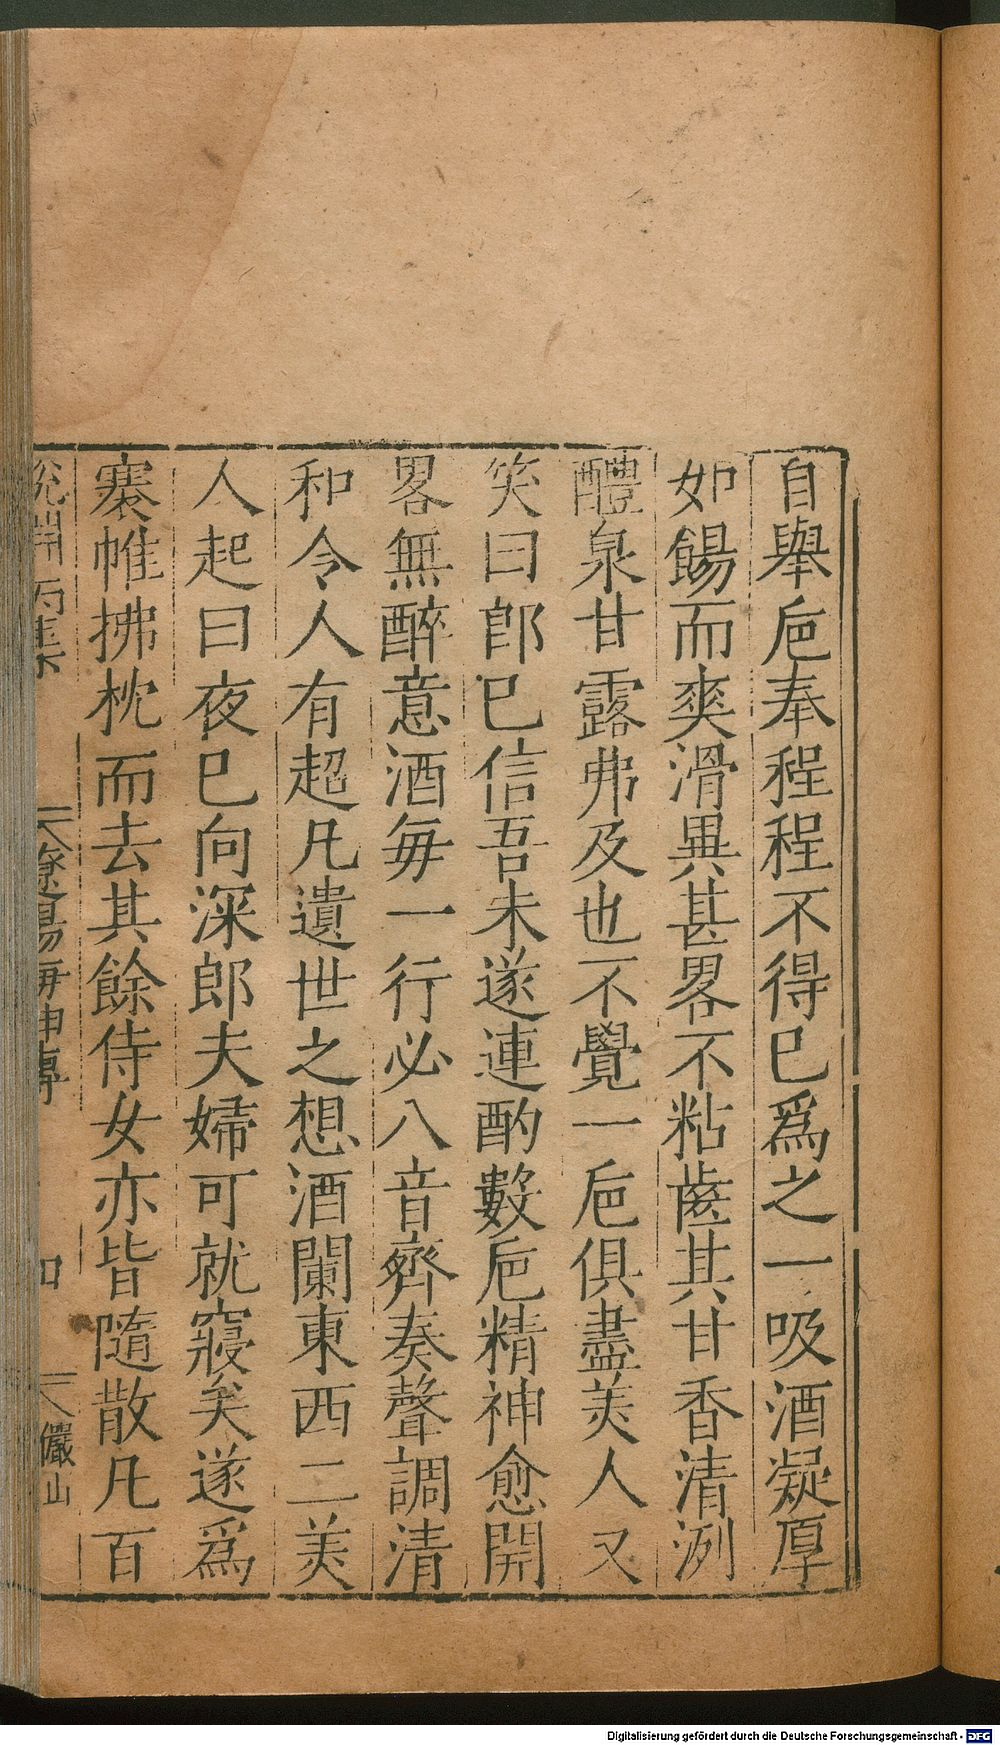 自舉巵奉程程不得已爲之一吸酒凝厚
如餳而爽滑異甚畧不粘齒其甘香清洌
醴泉甘露弗及也不覺一巵俱盡美人又
笑曰郎已信吾未遂連酌數巵精神愈開
畧無醉意酒每一行必八音齊奏聲調清
和令人有超凡遺世之想酒闌東西二美
人起曰夜已向深郎夫婦可就寢矣遂爲
褰帷拂枕而去其餘侍女亦皆隨散凡百
說淵丙集 遼陽海神傳 四 儼山
Digitalisierung gefördert durch die Deutsche Forschungsgemeinschaft - DFG